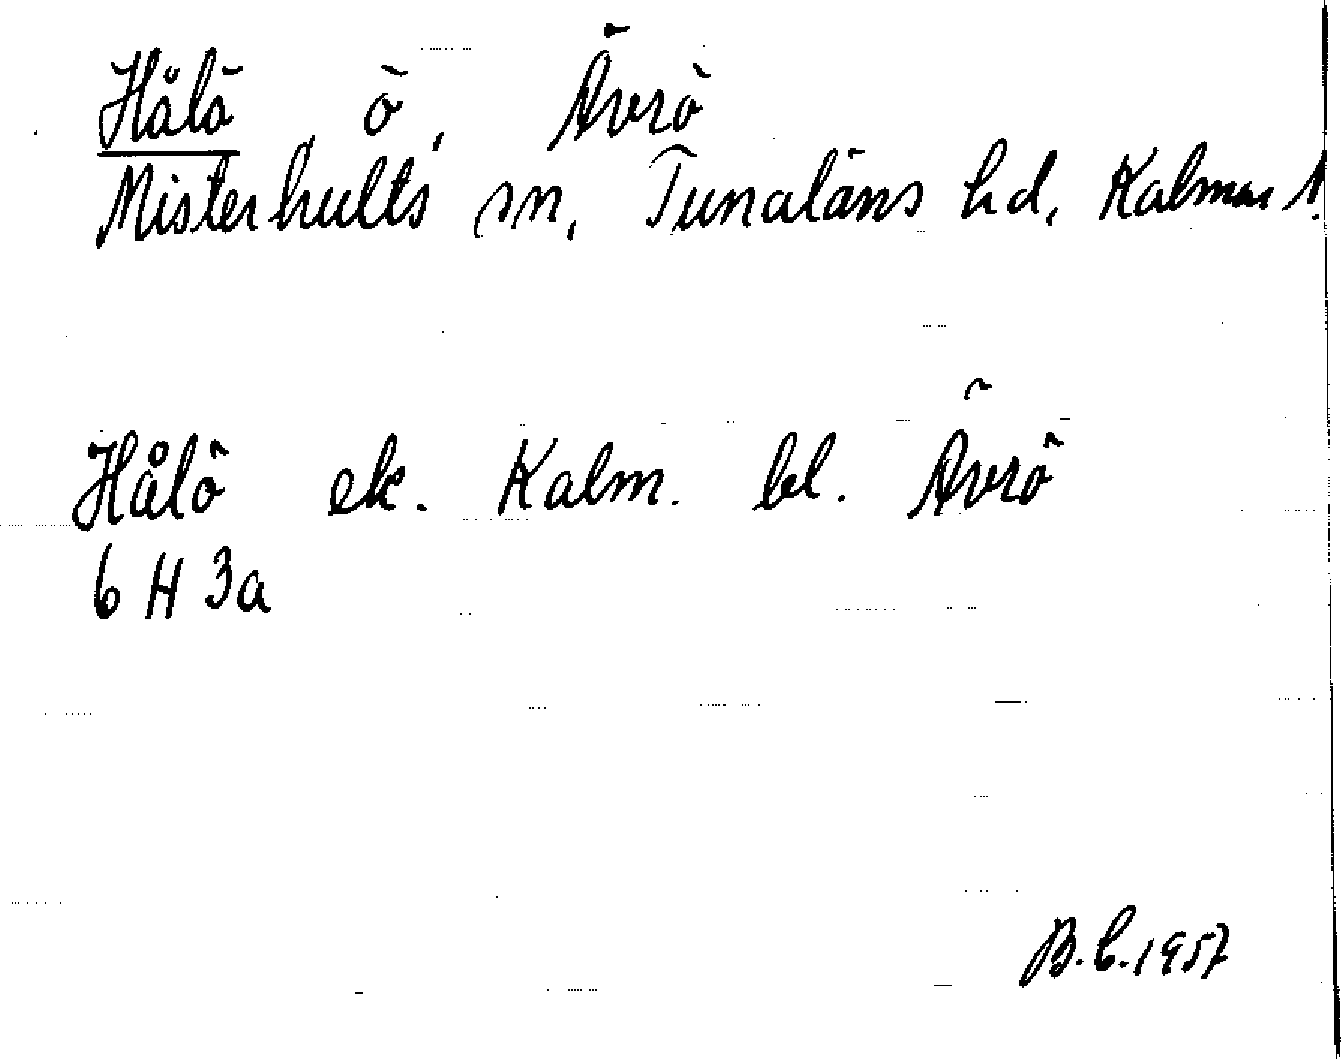 Hålö ö, Ävrö
Misterhults sn, Tunaläns hd, Kalmar l.
Hålö ek. Kalm. bl. Ävrö
6 H 3a
B.C. 1957